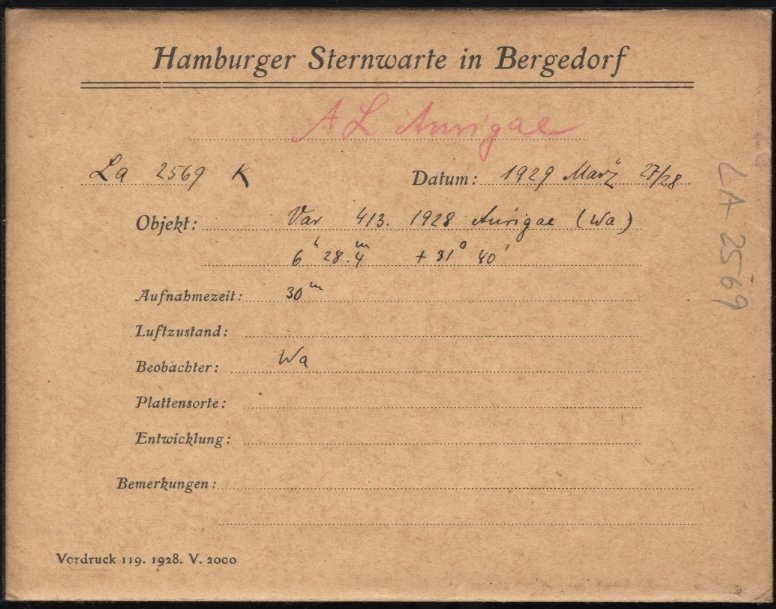 Hamburger Sternwarte in Bergedorf
AL Aurigae
La 2569 K Datum: 1929 März 27/28
Objekt: Var 413. 1928 Aurigae (Wa)
6ʰ 28.ᵐ4 + 31° 40'
Aufnahmezeit: 30ᵐ
Luftzustand:
Beobachter: Wa
Plattensorte:
Entwicklung:
Bemerkungen:
Vordruck 119. 1928. V. 2000
LA 2569